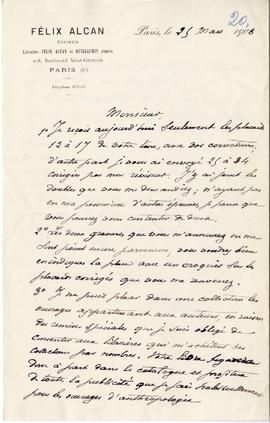 20.
FÉLIX ALCAN
ÉDITEUR
Librairies FÉLIX ALCAN et GUILLAUMIN réunies
108, Boulevard Saint-Germain
PARIS (6e)
Téléphone
Paris, le 25 Mars 1908
Monsieur,
1o Je reçois aujourd'hui seulement les placards
12 à 17 de votre livre, avec vos corrections,
d'autre part je vous ai envoyé 25 à 34
corrigés par mon réviseur. J'y ai joint les
doubles que vous me demandiez, n'ayant pas
en ma possession d'autres épreuves je pense que
vous pourrez vous contenter de deux.
2o Les deux gravures que vous m'annoncez ne me
sont point encore parvenues, vous voudrez bien
en indiquer la place avec un croquis sur les
placards corrigés que vous me renverrez.
3o Je ne puis placer dans une collection les
ouvrages appartenant aux auteurs, en raison
des remises spéciales que je suis obligé de
consentir aux libraires qui m'achètent des
collections par nombres. Votre livre figurera
donc à part dans le catalogue et profitera
de toute la publicité que je fais habituellement
pour les ouvrages d'anthropologie